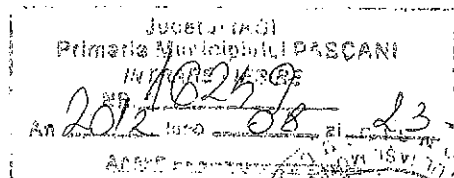 Județul IAȘI
Primăria Municipiului PAȘCANI
INTRARE IEȘIRE
NR. 16249
An 2012 luna 08 zi 23